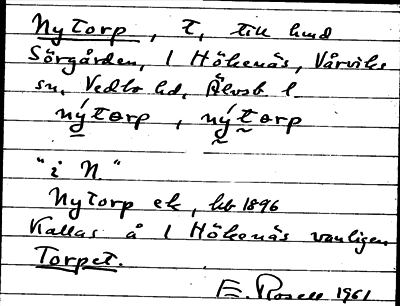 Nytorp, t, till hmd
Sörgården, 1 Hökenäs, Vårviks
sn, Vedbo hd, Älvsb l.
nýtorp, nýtorp
"i N."
Nytorp ek, hb 1896
Kallas å 1 Hökenäs vanligen
Torpet.
E. Rosell 1961